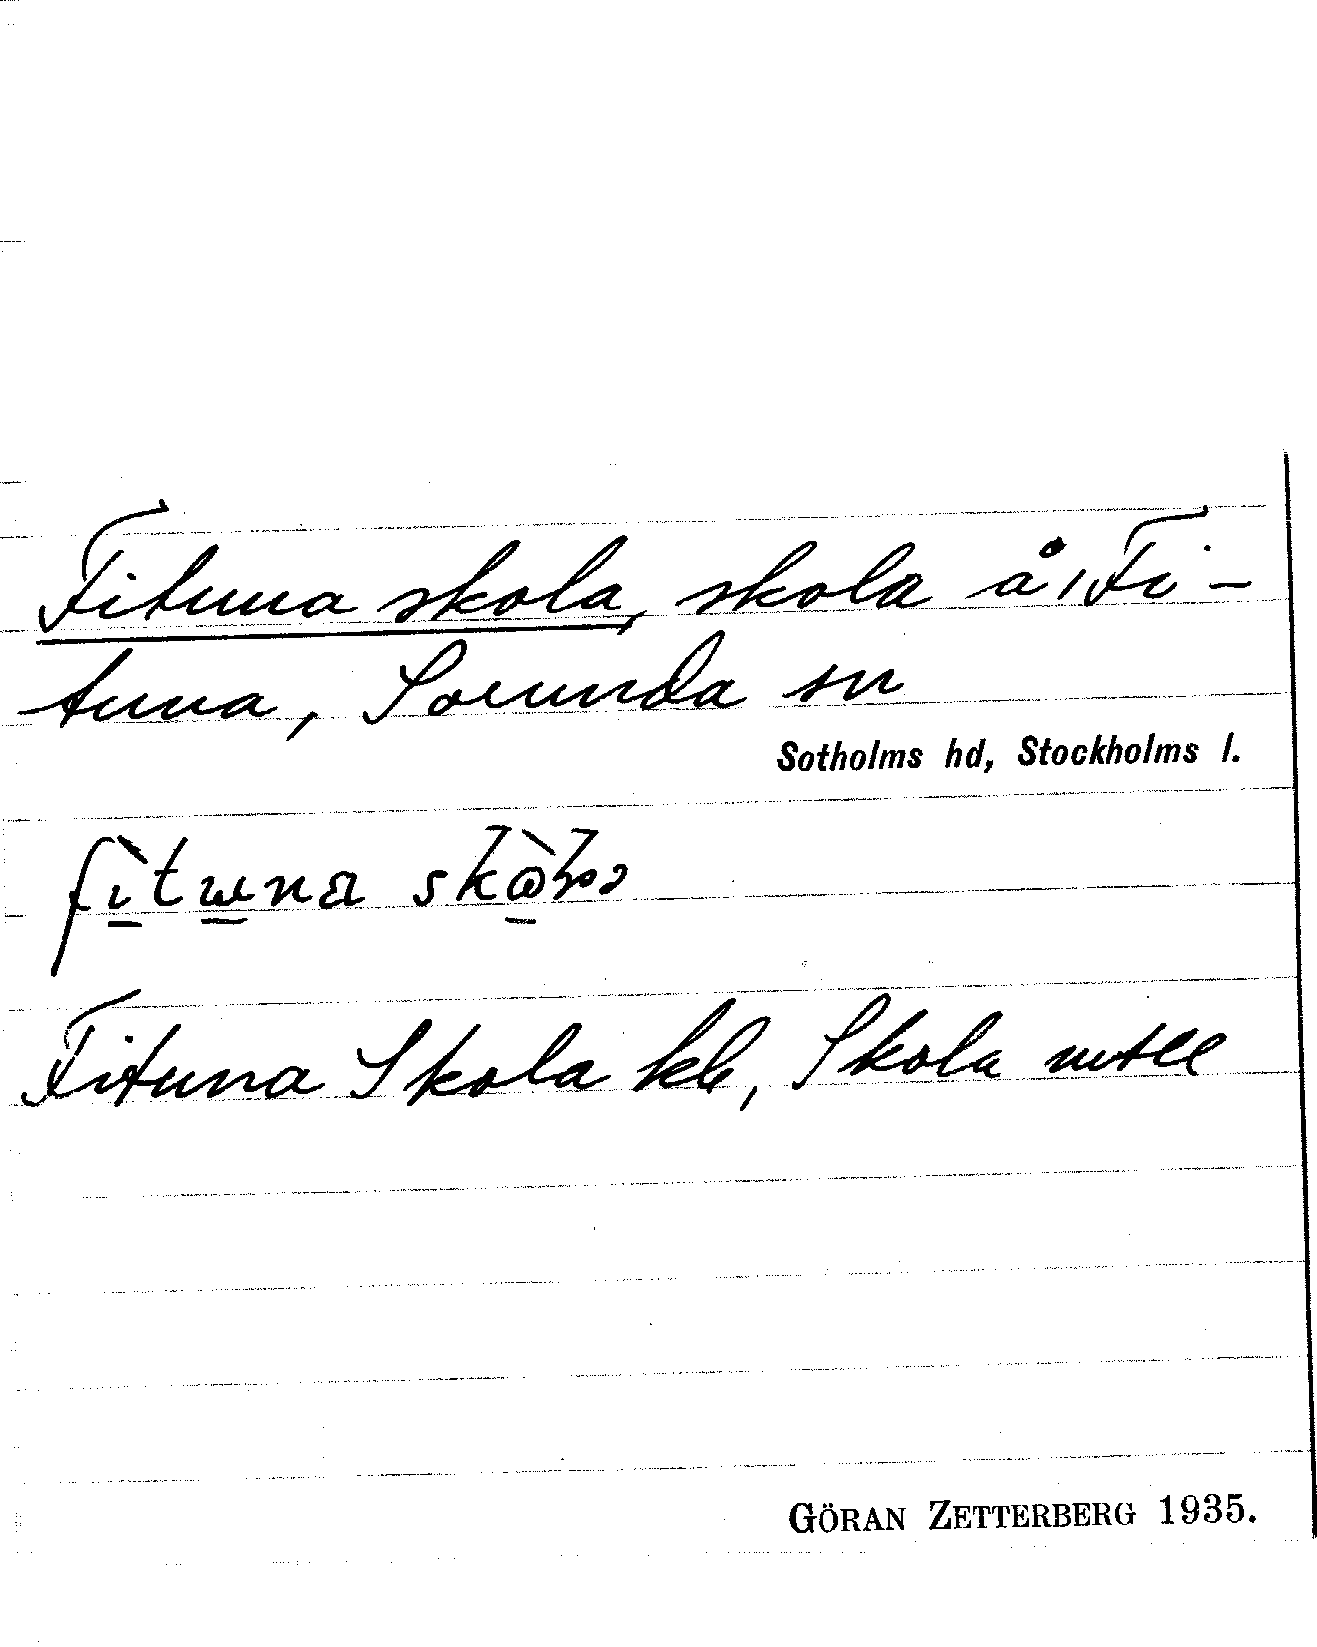 Fituna skola, skola å, Fi-
tuna, Sorunda sn
Sotholms hd, Stockholms l.
Fituna Skola kb, Skola mtll
GÖRAN ZETTERBERG 1935.